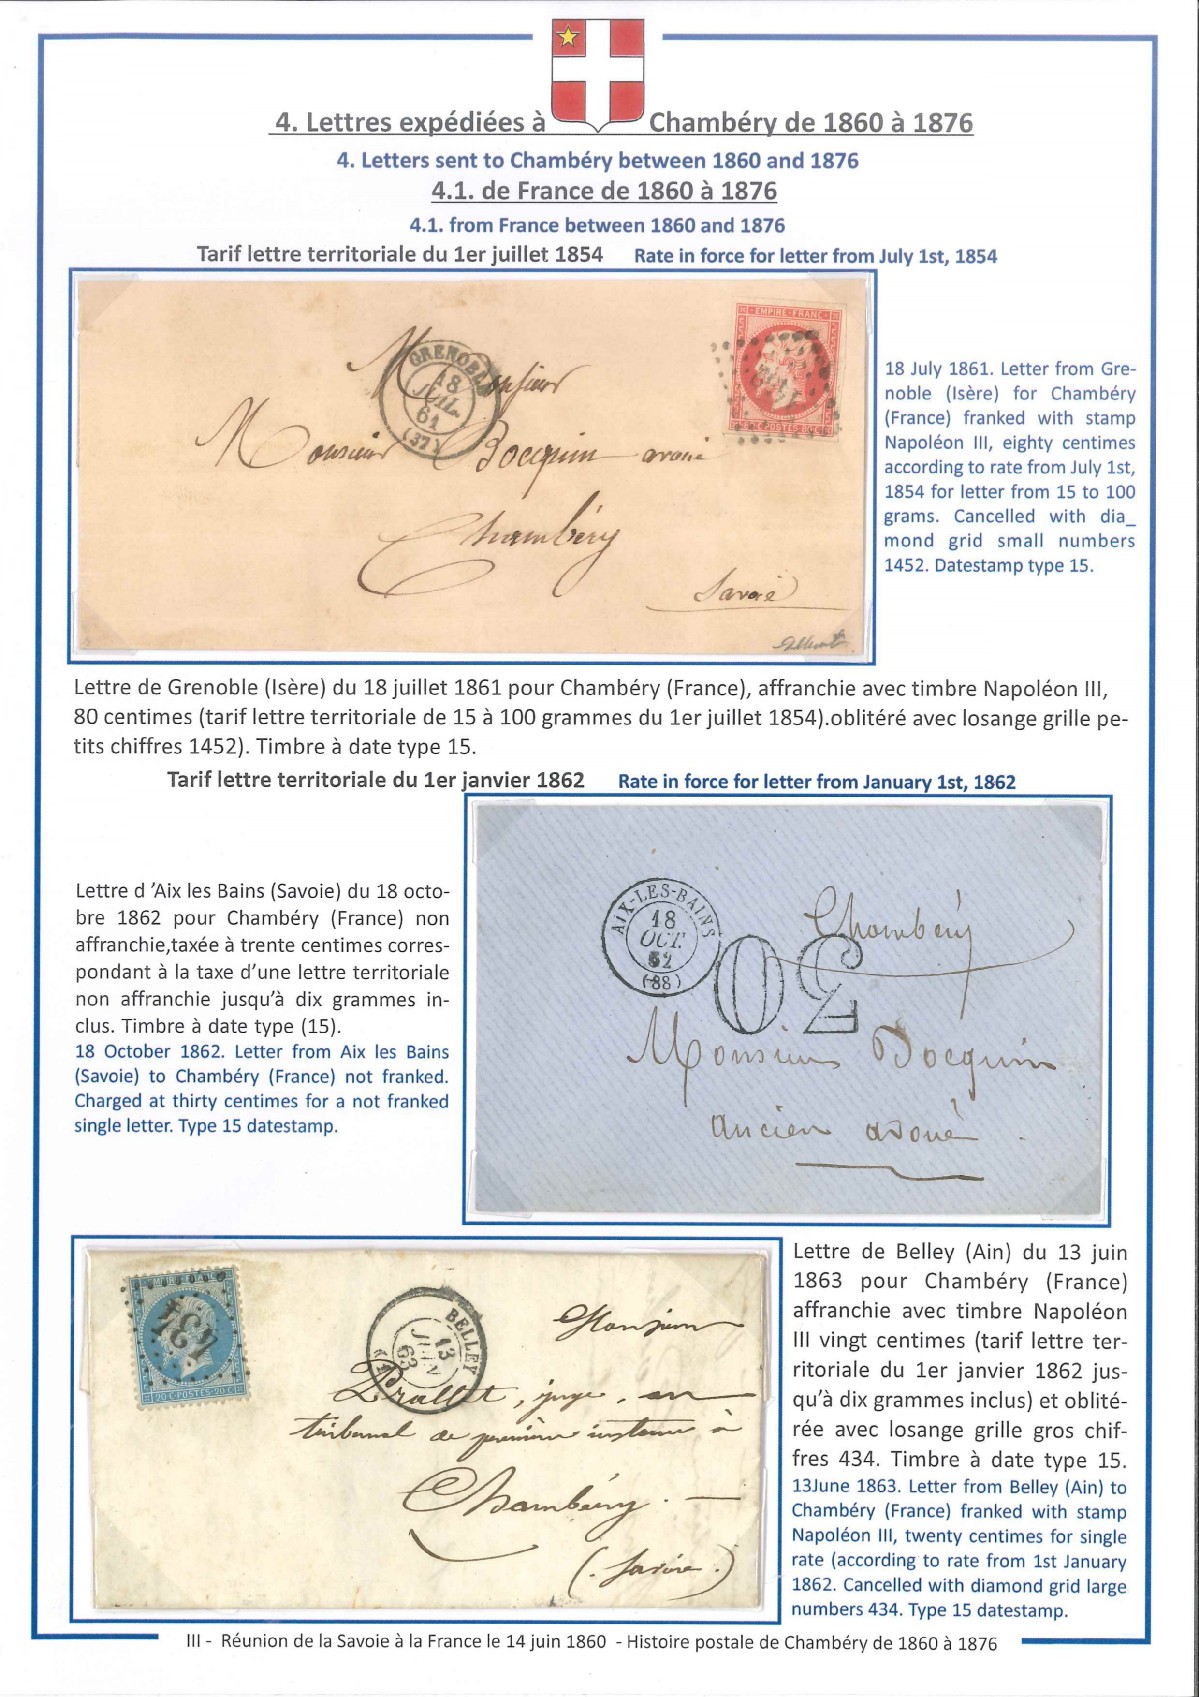 4. Lettres expédiées à Chambéry de 1860 à 1876
4. Letters sent to Chambéry between 1860 and 1876
4.1. de France de 1860 à 1876
4.1. from France between 1860 and 1876
Tarif lettre territoriale du 1er juillet 1854 Rate in force for letter from July 1st, 1854
EMPIRE FRANC
80 C-POSTES-80 C
GRENOBLE
18
JUIL.
61
(37)
Monsieur
Monsieur Bocquin avoué
Chambéry
Savoie
18 July 1861. Letter from Gre-
noble (Isère) for Chambéry
(France) franked with stamp
Napoléon III, eighty centimes
according to rate from July 1st,
1854 for letter from 15 to 100
grams. Cancelled with dia_
mond grid small numbers
1452. Datestamp type 15.
Lettre de Grenoble (Isère) du 18 juillet 1861 pour Chambéry (France), affranchie avec timbre Napoléon III,
80 centimes (tarif lettre territoriale de 15 à 100 grammes du 1er juillet 1854).oblitéré avec losange grille pe-
tits chiffres 1452). Timbre à date type 15.
Tarif lettre territoriale du 1er janvier 1862 Rate in force for letter from January 1st, 1862
Lettre d 'Aix les Bains (Savoie) du 18 octo-
bre 1862 pour Chambéry (France) non
affranchie,taxée à trente centimes corres-
pondant à la taxe d'une lettre territoriale
non affranchie jusqu'à dix grammes in-
clus. Timbre à date type (15).
18 October 1862. Letter from Aix les Bains
(Savoie) to Chambéry (France) not franked.
Charged at thirty centimes for a not franked
single letter. Type 15 datestamp.
AIX-LES-BAINS
18
OCT.
62
(88)
30
Chambéry
Monsieur Bocquin
ancien avoué
EMPIRE FRANC
434
20 C-POSTES-20 C
BELLEY
13
JUIN
63
Monsieur
Prallet, juge, au
tribunal de première instance à
Chambéry. —
(Savoie.)
Lettre de Belley (Ain) du 13 juin
1863 pour Chambéry (France)
affranchie avec timbre Napoléon
III vingt centimes (tarif lettre ter-
ritoriale du 1er janvier 1862 jus-
qu'à dix grammes inclus) et oblité-
rée avec losange grille gros chif-
fres 434. Timbre à date type 15.
13June 1863. Letter from Belley (Ain) to
Chambéry (France) franked with stamp
Napoléon III, twenty centimes for single
rate (according to rate from 1st January
1862. Cancelled with diamond grid large
numbers 434. Type 15 datestamp.
III - Réunion de la Savoie à la France le 14 juin 1860 - Histoire postale de Chambéry de 1860 à 1876